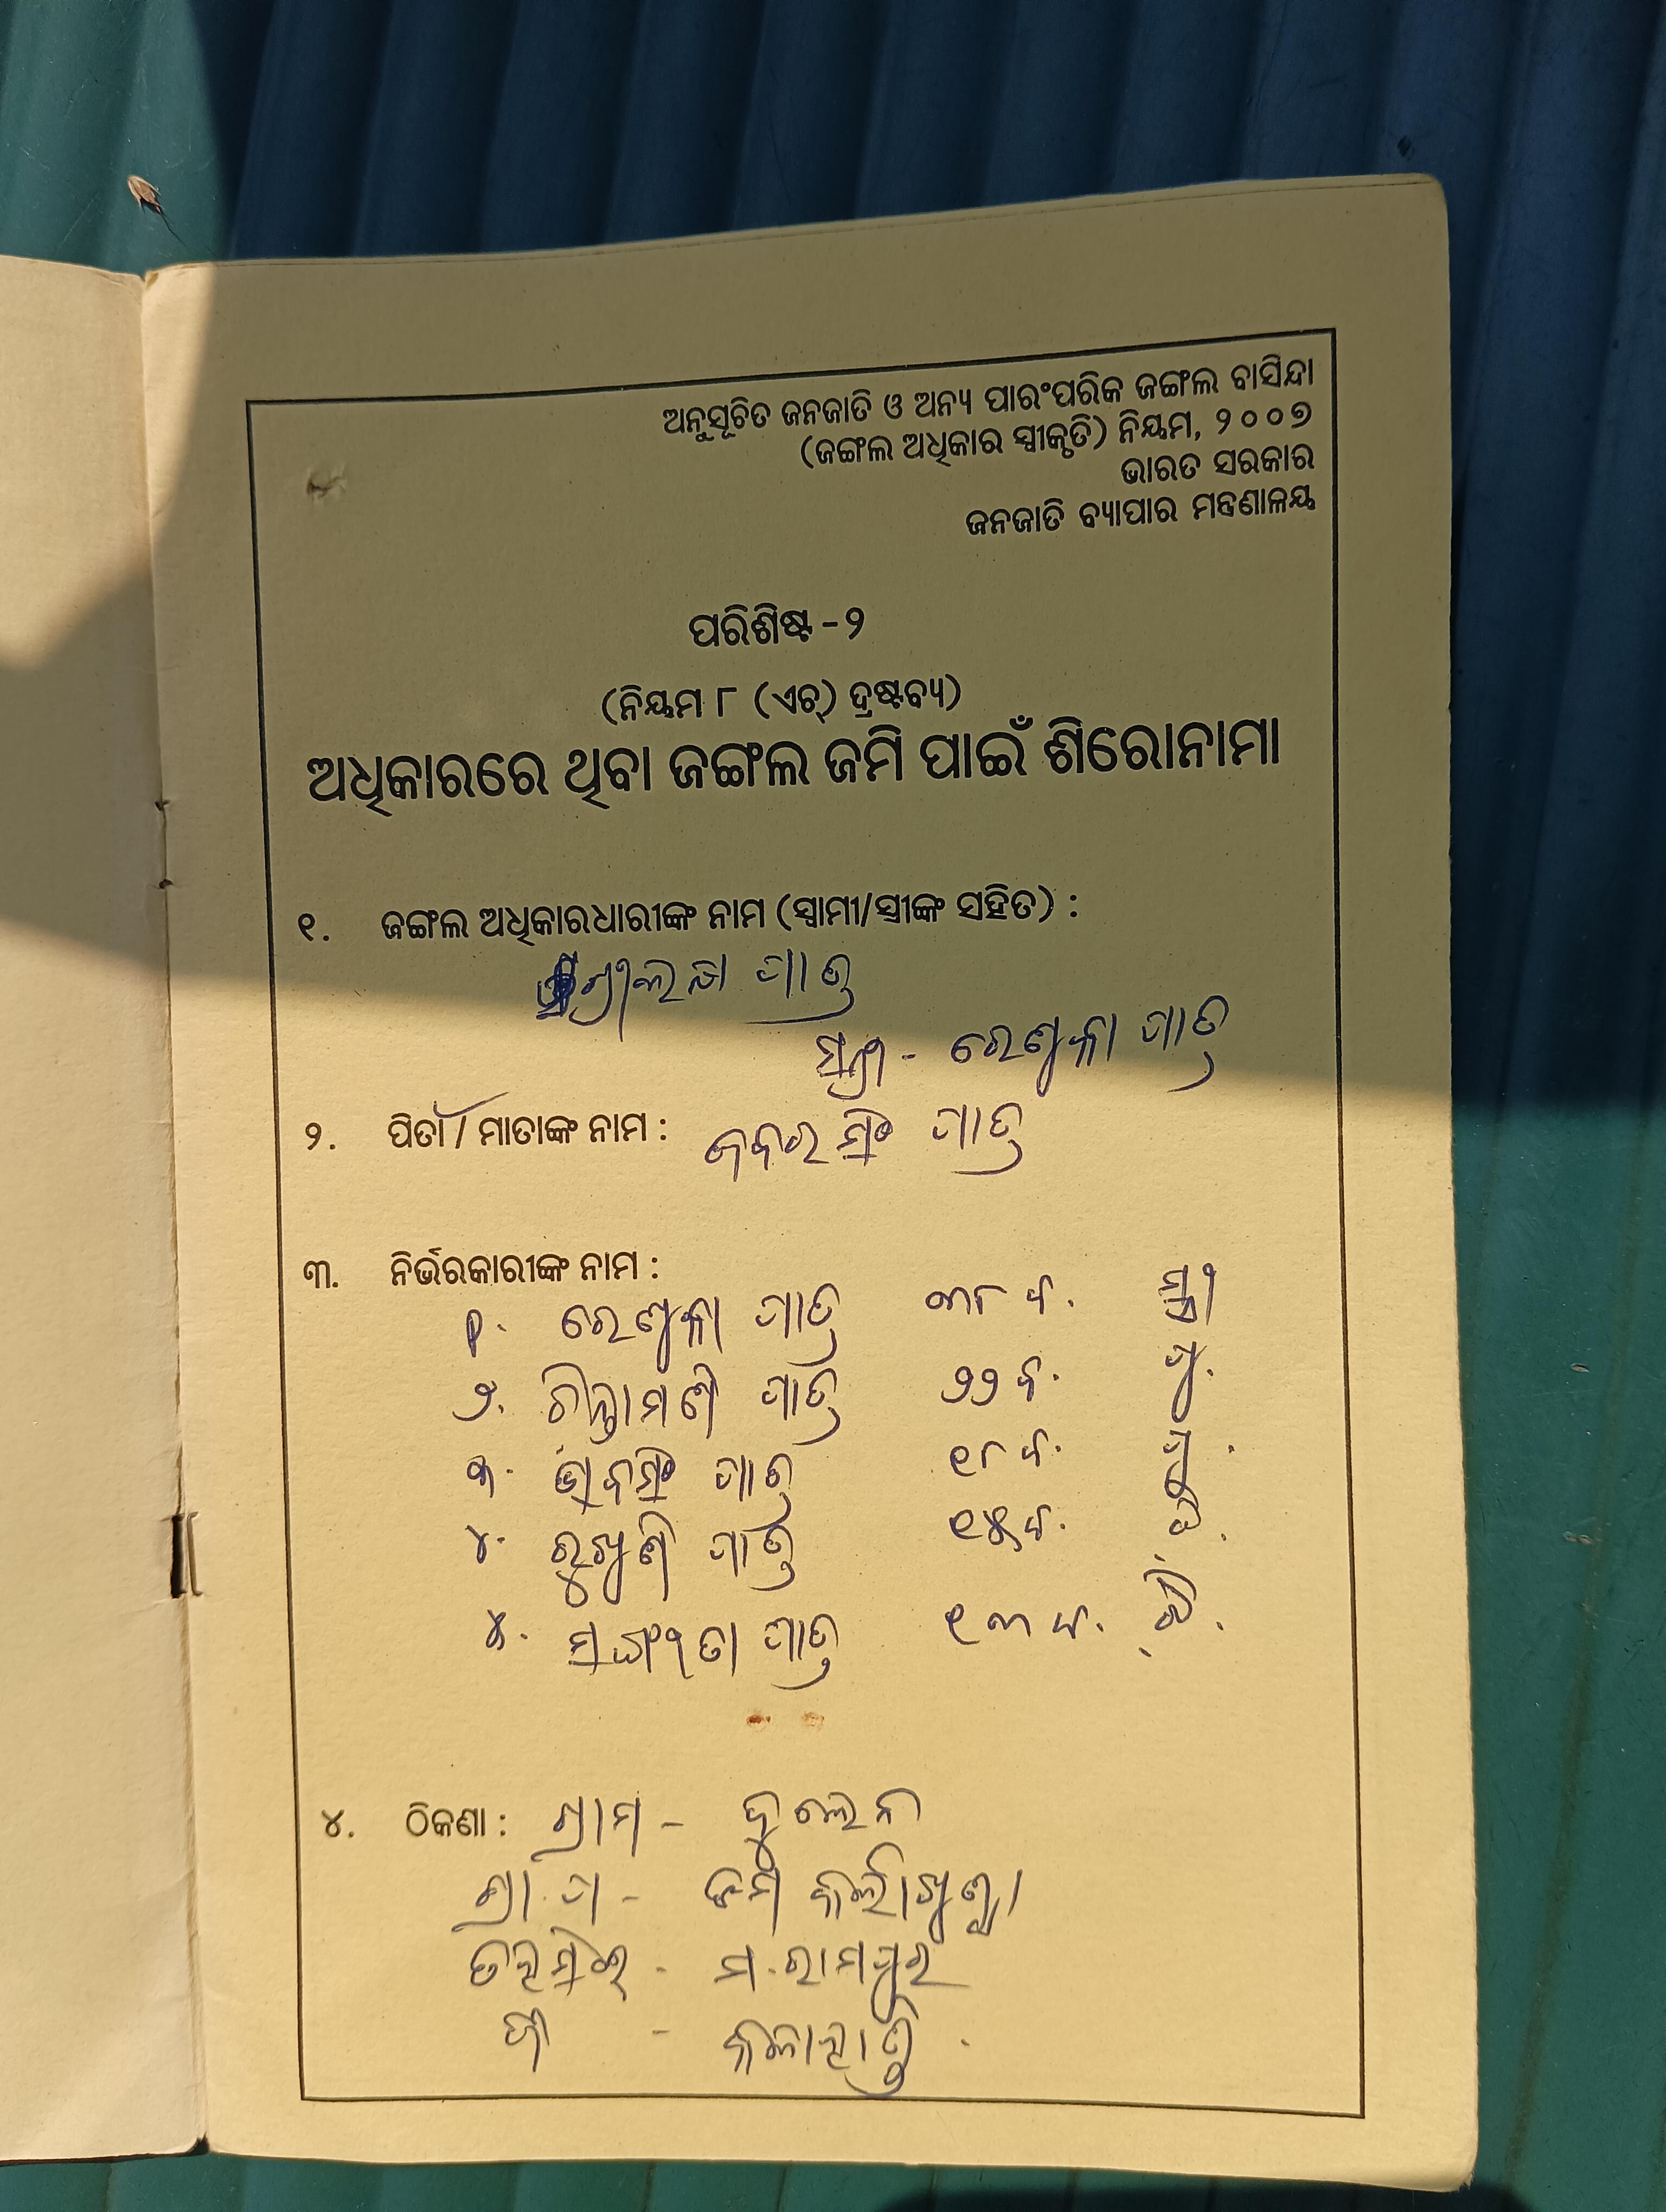 ଅନୁସୂଚିତ ଜନଜାତି ଓ ଅନ୍ୟ ପାରଂପରିକ ଜଙ୍ଗଲ ବାସିନ୍ଦା
(ଜଙ୍ଗଲ ଅଧିକାର ସ୍ୱୀକୃତି) ନିୟମ, ୨୦୦୭
ଭାରତ ସରକାର
ଜନଜାତି ବ୍ୟାପାର ମନ୍ତ୍ରଣାଳୟ
ପରିଶିଷ୍ଟ - ୨
(ନିୟମ ୮ (ଏଚ୍) ଦ୍ରଷ୍ଟବ୍ୟ)
ଅଧିକାରରେ ଥିବା ଜଙ୍ଗଲ ଜମି ପାଇଁ ଶିରୋନାମା
୧. ଜଙ୍ଗଲ ଅଧିକାରଧାରୀଙ୍କ ନାମ (ସ୍ୱାମୀ/ସ୍ତ୍ରୀଙ୍କ ସହିତ) :
ସ୍ତ୍ରୀ - ରେଣୁକା ପାତ୍ର
୨. ପିତା / ମାତାଙ୍କ ନାମ : ପାତ୍ର
୩. ନିର୍ଭରକାରୀଙ୍କ ନାମ :
୧. ରେଣୁକା ପାତ୍ର ୩୮ ବ. ସ୍ତ୍ରୀ
୨. ଚିନ୍ତାମଣି ପାତ୍ର ୨୨ ବ. ପୁ.
୩. ପାତ୍ର ୧୮ ବ. ପୁ.
୪. ପାତ୍ର ୧୫ ବ.
୫. ପାତ୍ର ୧୩ ବ.
୪. ଠିକଣା : ଗ୍ରାମ -
ଗ୍ରା. ପ -
ତହସିଲ - ମ. ରାମପୁର
ଜି - କଳାହାଣ୍ଡି